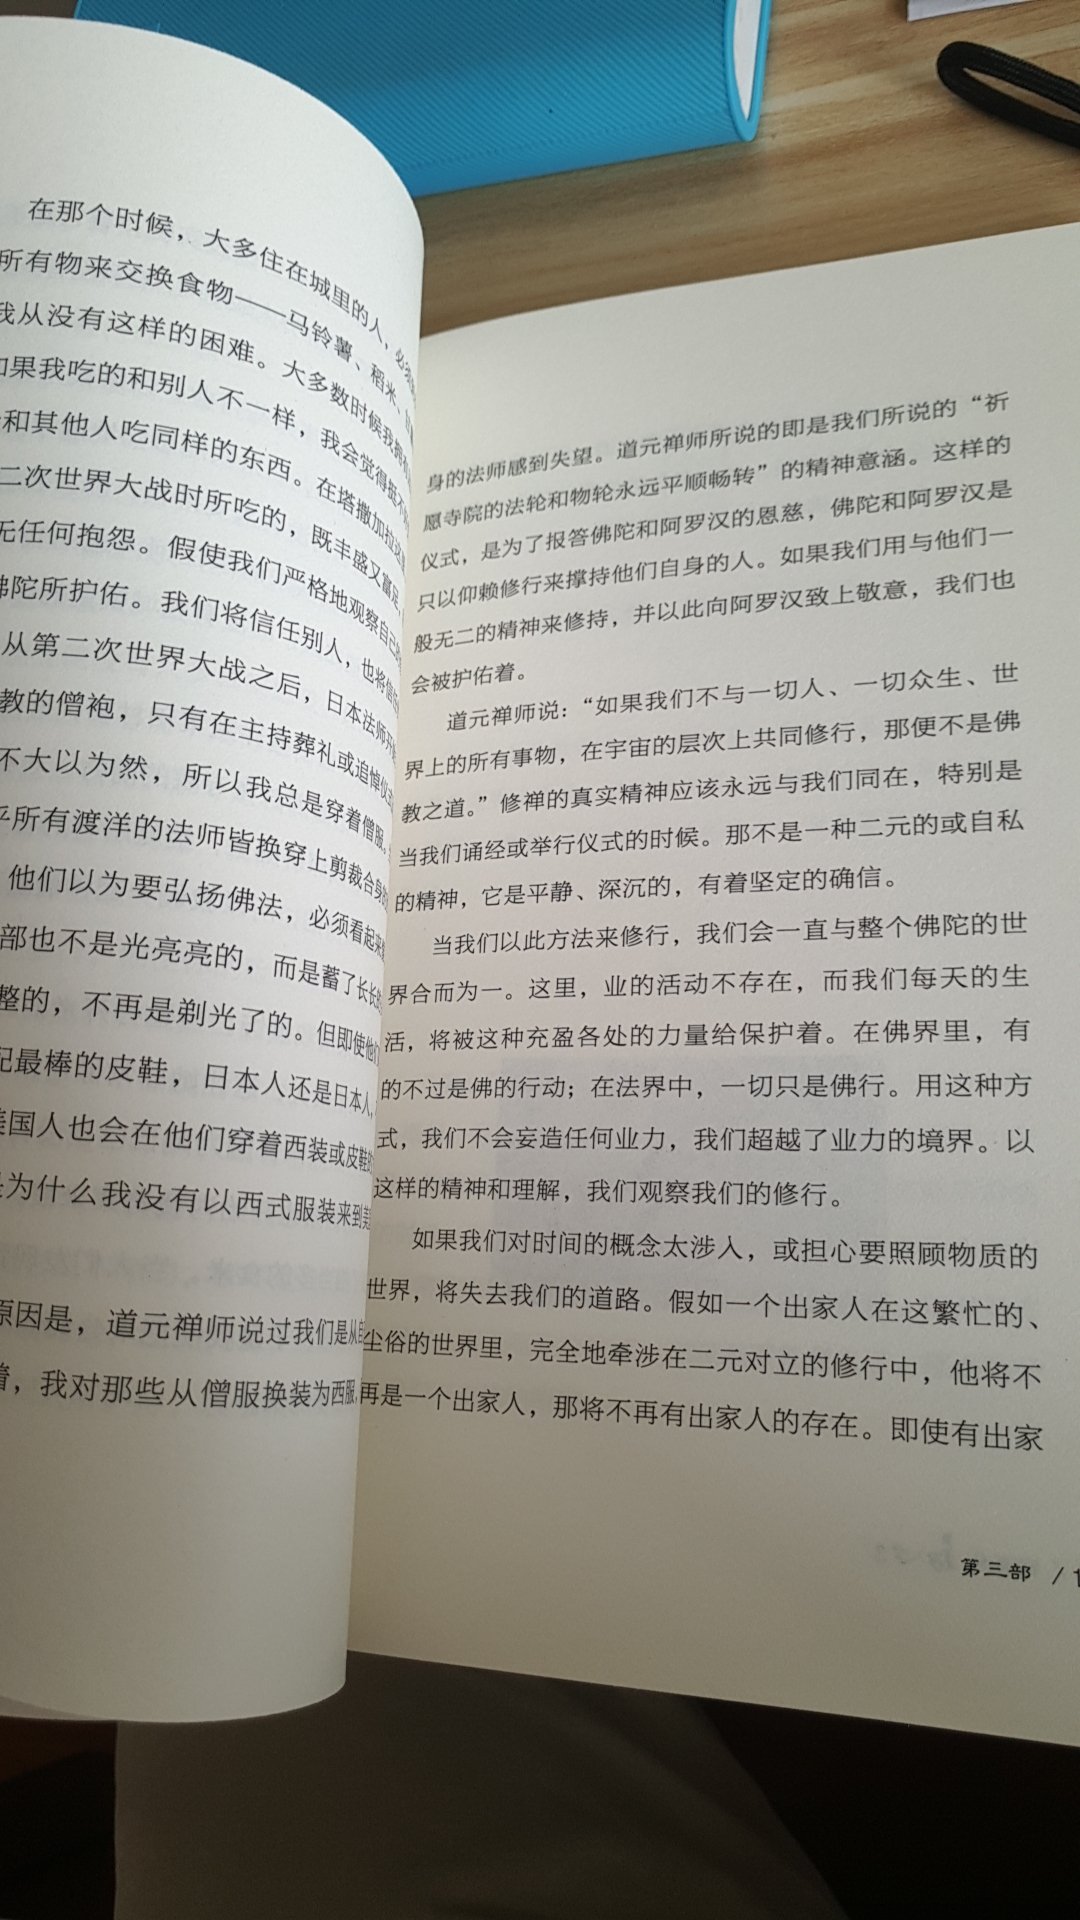 在那个时候，大多住在城里的人，必须
所有物来交换食物——马铃薯、稻米、
我从没有这样的困难。大多数时候我拥有
如果我吃的和别人不一样，我会觉得挺不
和其他人吃同样的东西。在塔撒加拉这
二次世界大战时所吃的，既丰盛又富足，
无任何抱怨。假使我们严格地观察自己的
佛陀所护佑。我们将信任别人，也将信任
从第二次世界大战之后，日本法师开始
教的僧袍，只有在主持葬礼或追悼仪式
不大以为然，所以我总是穿着僧服。
乎所有渡洋的法师皆换穿上剪裁合身的
他们以为要弘扬佛法，必须看起来
部也不是光亮亮的，而是蓄了长长的
整的，不再是剃光了的。但即使他们
配最棒的皮鞋，日本人还是日本人，
美国人也会在他们穿着西装或皮鞋的
是为什么我没有以西式服装来到美
原因是，道元禅师说过我们是从
着，我对那些从僧服换装为西服，
身的法师感到失望。道元禅师所说的即是我们所说的“祈
愿寺院的法轮和物轮永远平顺畅转”的精神意涵。这样的
仪式，是为了报答佛陀和阿罗汉的恩慈，佛陀和阿罗汉是
只以仰赖修行来撑持他们自身的人。如果我们用与他们一
般无二的精神来修持，并以此向阿罗汉致上敬意，我们也
会被护佑着。
道元禅师说：“如果我们不与一切人、一切众生、世
界上的所有事物，在宇宙的层次上共同修行，那便不是佛
教之道。”修禅的真实精神应该永远与我们同在，特别是
当我们诵经或举行仪式的时候。那不是一种二元的或自私
的精神，它是平静、深沉的，有着坚定的确信。
当我们以此方法来修行，我们会一直与整个佛陀的世
界合而为一。这里，业的活动不存在，而我们每天的生
活，将被这种充盈各处的力量给保护着。在佛界里，有
的不过是佛的行动；在法界中，一切只是佛行。用这种方
式，我们不会妄造任何业力，我们超越了业力的境界。以
这样的精神和理解，我们观察我们的修行。
如果我们对时间的概念太涉入，或担心要照顾物质的
世界，将失去我们的道路。假如一个出家人在这繁忙的、
尘俗的世界里，完全地牵涉在二元对立的修行中，他将不
再是一个出家人，那将不再有出家人的存在。即使有出家
第三部 / 1